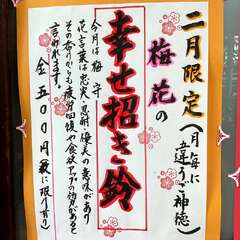 二月限定(月毎に違うご神徳)
梅花の
幸せ招き鈴
今月は梅守
花言葉は忠実、忍耐、優美の意味があり
その香りからも疲労回復や食欲アップの効果があると
言われてます。
金五〇〇円(数に限り有り)